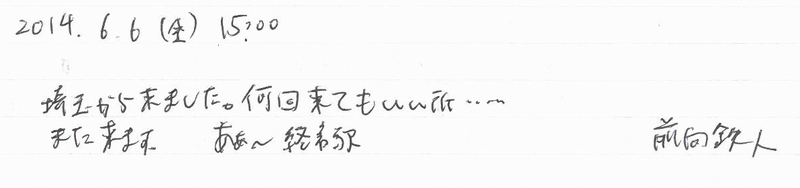 2014. 6. 6 (金) 15:00
埼玉から来ました。何回来てもいい所‥‥
また来ます. ああ～終着駅 前向鉄人